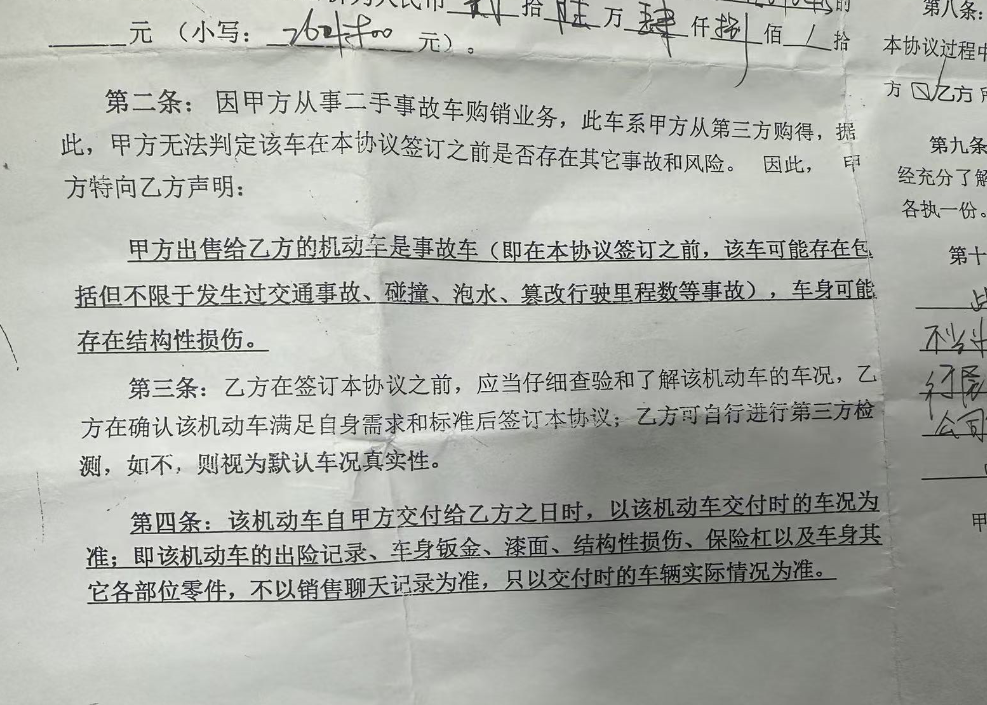 拾 万 肆 仟 佰 拾
元 （小写： 元）。
第二条： 因甲方从事二手事故车购销业务，此车系甲方从第三方购得，据
此，甲方无法判定该车在本协议签订之前是否存在其它事故和风险。 因此， 甲
方特向乙方声明：
甲方出售给乙方的机动车是事故车（即在本协议签订之前，该车可能存在包
括但不限于发生过交通事故、碰撞、泡水、篡改行驶里程数等事故），车身可能
存在结构性损伤。
第三条：乙方在签订本协议之前，应当仔细查验和了解该机动车的车况，乙
方在确认该机动车满足自身需求和标准后签订本协议；乙方可自行进行第三方检
测，如不，则视为默认车况真实性。
第四条：该机动车自甲方交付给乙方之日时，以该机动车交付时的车况为
准；即该机动车的出险记录、车身钣金、漆面、结构性损伤、保险杠以及车身其
它各部位零件，不以销售聊天记录为准，只以交付时的车辆实际情况为准。
第八条：
本协议过程中
方 乙方
第九条
经充分了解
各执一份。
第十
公司
甲